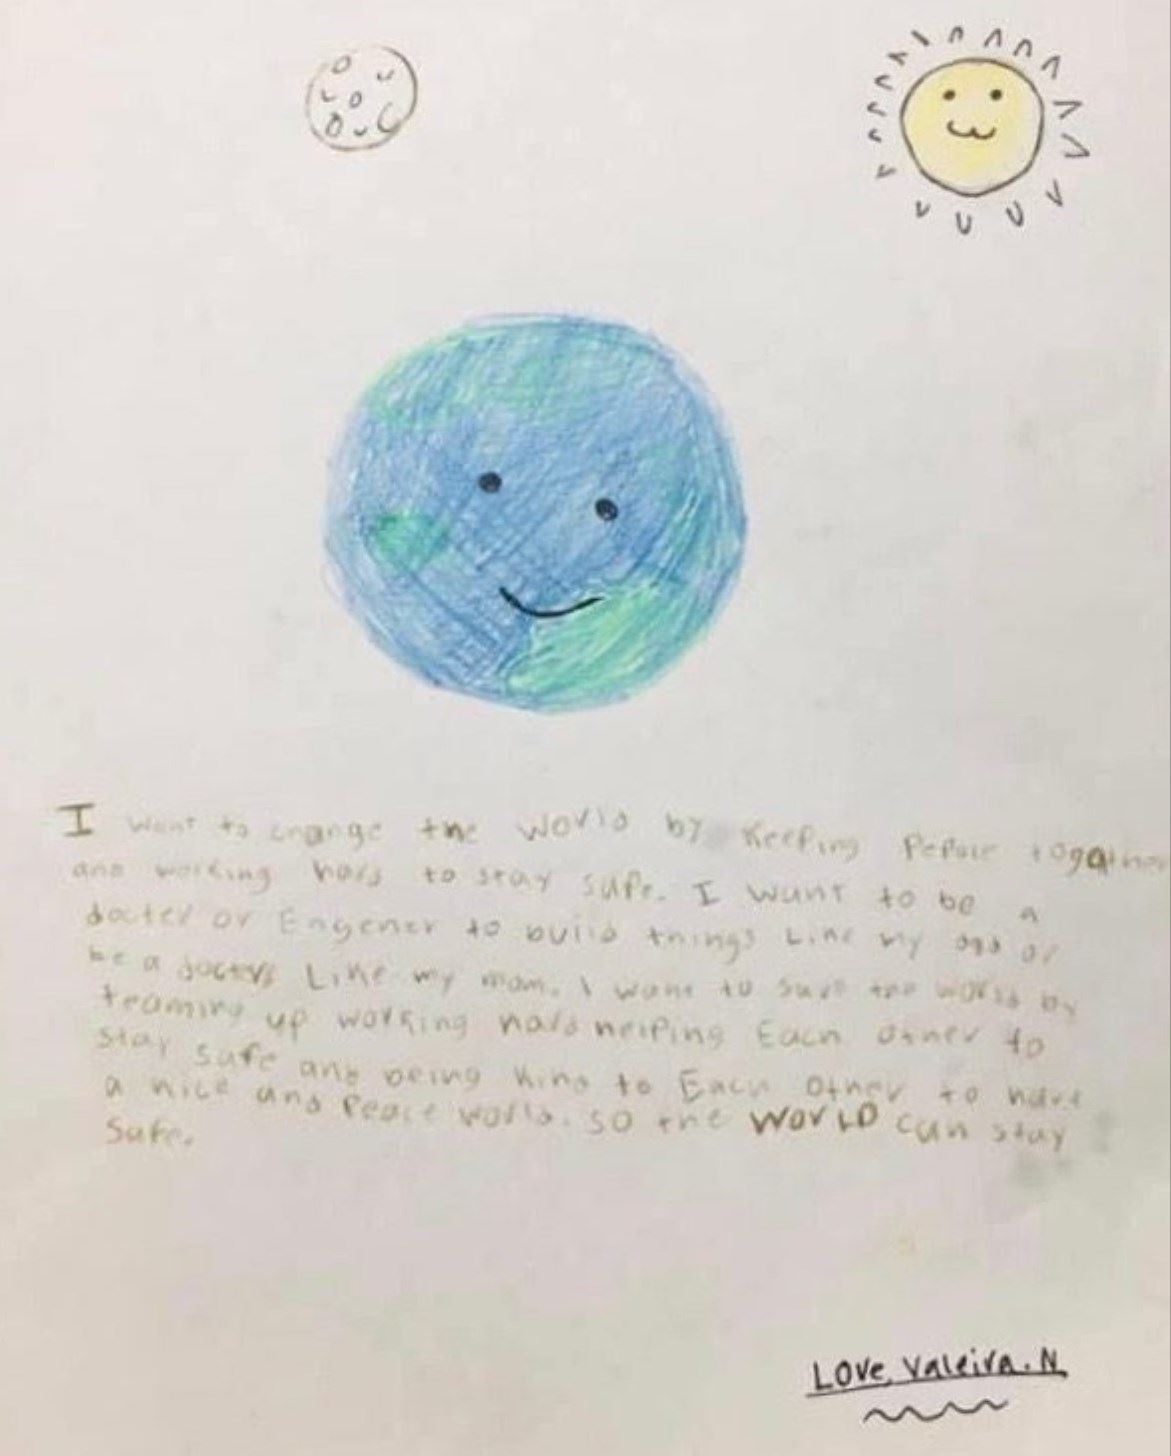 I want to change the world by Keeping Pepole togather
and working hard to stay safe. I want to be a
docter or Engener to build things Like my dad or
be a docters Like my mom. I want to save the world by
teaming up working hard helping Each Other to
stay safe and being Kind to Each Other to have
a nice and Peace world. so the WORLD can stay
safe.
Love, Valeira. N